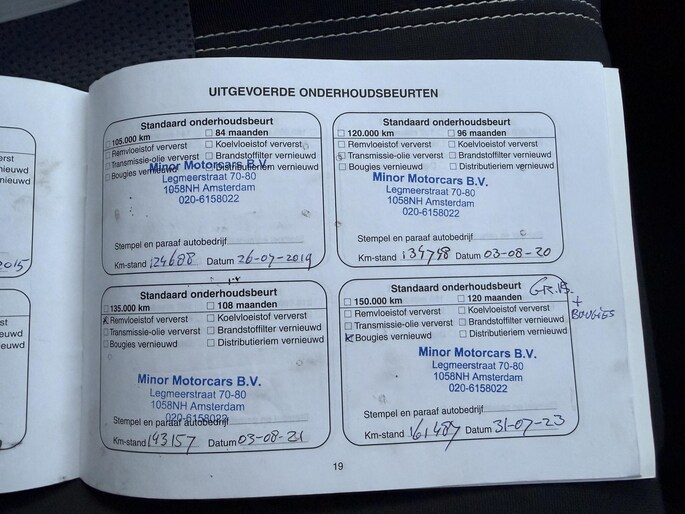 UITGEVOERDE ONDERHOUDSBEURTEN
Standaard onderhoudsbeurt
105.000 km 84 maanden
Remvloeistof ververst Koelvloeistof ververst
Transmissie-olie ververst Brandstoffilter vernieuwd
Bougies vernieuwd Distributieriem vernieuwd
Minor Motorcars B.V.
Legmeerstraat 70-80
1058NH Amsterdam
020-6158022
Stempel en paraaf autobedrijf
Km-stand 124688 Datum 26-07-2019
Standaard onderhoudsbeurt
120.000 km 96 maanden
Remvloeistof ververst Koelvloeistof ververst
Transmissie-olie ververst Brandstoffilter vernieuwd
Bougies vernieuwd Distributieriem vernieuwd
Minor Motorcars B.V.
Legmeerstraat 70-80
1058NH Amsterdam
020-6158022
Stempel en paraaf autobedrijf
Km-stand 134798 Datum 03-08-20
Standaard onderhoudsbeurt
135.000 km 108 maanden
Remvloeistof ververst Koelvloeistof ververst
Transmissie-olie ververst Brandstoffilter vernieuwd
Bougies vernieuwd Distributieriem vernieuwd
Minor Motorcars B.V.
Legmeerstraat 70-80
1058NH Amsterdam
020-6158022
Stempel en paraaf autobedrijf
Km-stand 143157 Datum 03-08-21
Standaard onderhoudsbeurt
150.000 km 120 maanden
Remvloeistof ververst Koelvloeistof ververst
Transmissie-olie ververst Brandstoffilter vernieuwd
Bougies vernieuwd Distributieriem vernieuwd
+
BOUGIES
Minor Motorcars B.V.
Legmeerstraat 70-80
1058NH Amsterdam
020-6158022
Stempel en paraaf autobedrijf
Km-stand 161487 Datum 31-07-23
19
2015